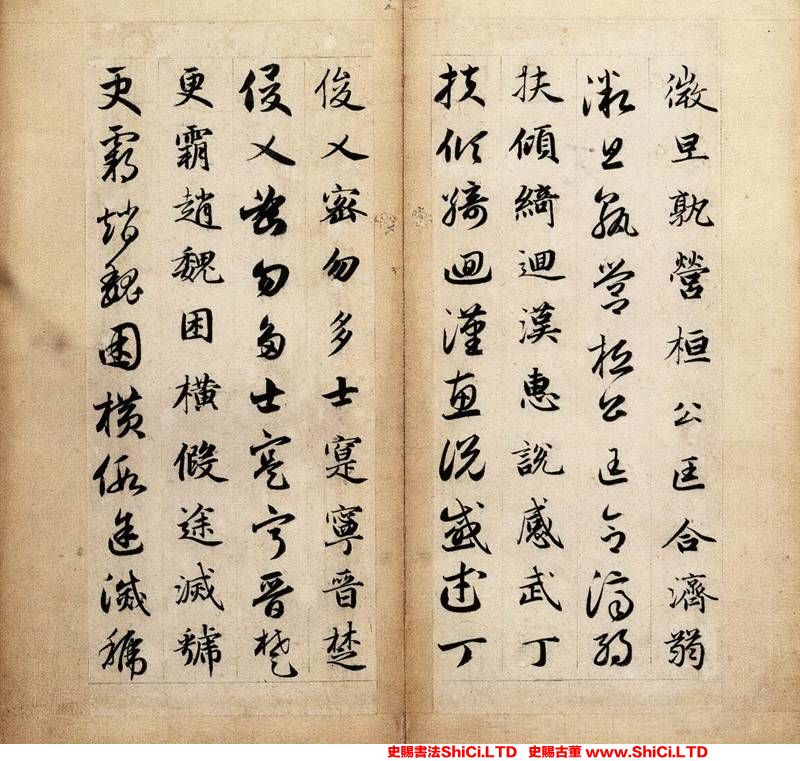 微旦孰營桓公匡合濟弱
微旦孰營桓公匡合濟弱
扶傾綺迴漢惠說感武丁
扶傾綺迴漢惠說感武丁
俊乂密勿多士寔寧晉楚
俊乂密勿多士寔寧晉楚
更霸趙魏困橫假途滅虢
更霸趙魏困橫假途滅虢
史賜書法ShiCi.LTD 史賜古董 www.ShiCi.LTD